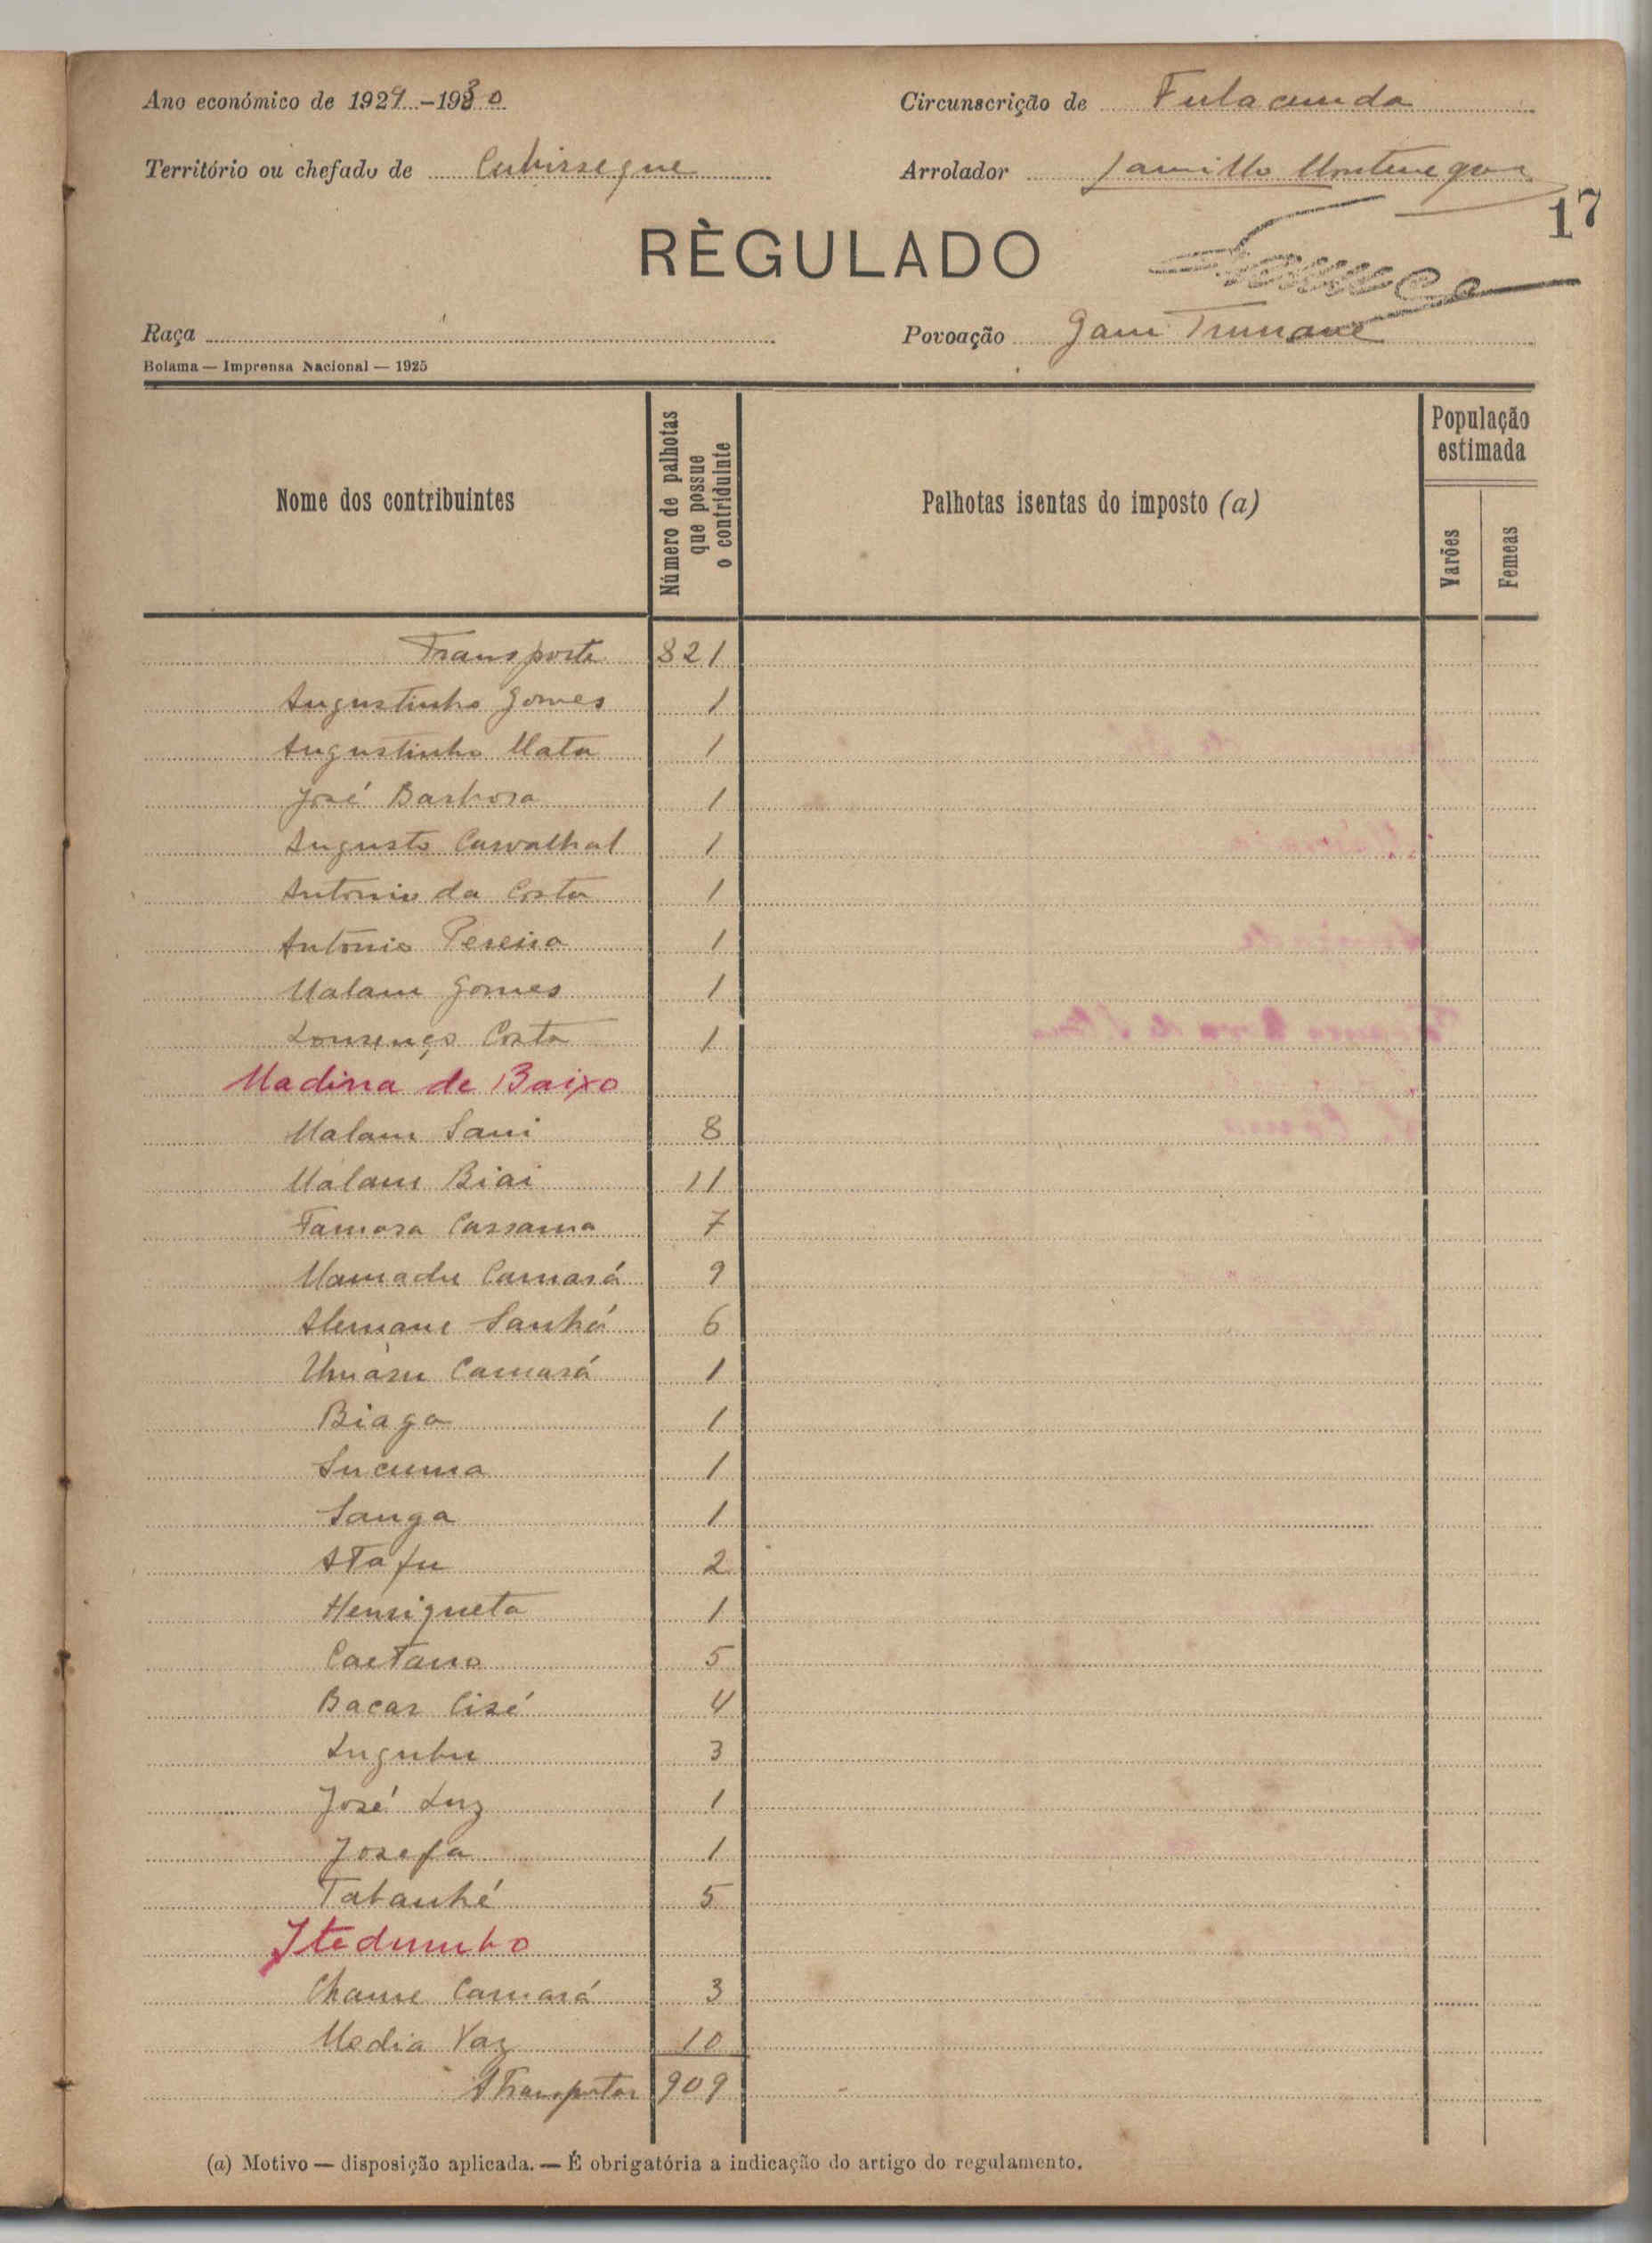 Ano económico de 1929-1930
Circunscrição de Fulacunda
Território ou chefado de Cubissegue
Arrolador Camillo Montenegro
17
RÈGULADO
Raça
Povoação Gam Trunane
Bolama — Imprensa Nacional — 1925
Nome dos contribuintes
Número de palhotas que possue o contriduinte
Palhotas isentas do imposto (a)
População estimada
Varões
Femeas
Transporte 821
Augustinho Gomes 1
Augustinho Mata 1
José Barbosa 1
Augusto Carvalhal 1
Antonio da Costa 1
Antonio Pereira 1
Malam Gomes 1
Lourenço Costa 1
Madina de Baixo
Malam Sani 8
Malam Biai 11
Famara Cassama 7
Mamadu Camará 9
Alemane Sanhá 6
Umaru Camará 1
Biaga 1
Sucuma 1
Sanga 1
Atafu 2
Henriqueta 1
Caetano 5
Bacar Cisé 4
Lugubu 3
José Luz 1
Josefa 1
Tabanhé 5
Itedumbo
Chame Camará 3
Media Vaz 10
A Transportar 909
(a) Motivo — disposição aplicada. — É obrigatória a indicação do artigo do regulamento.